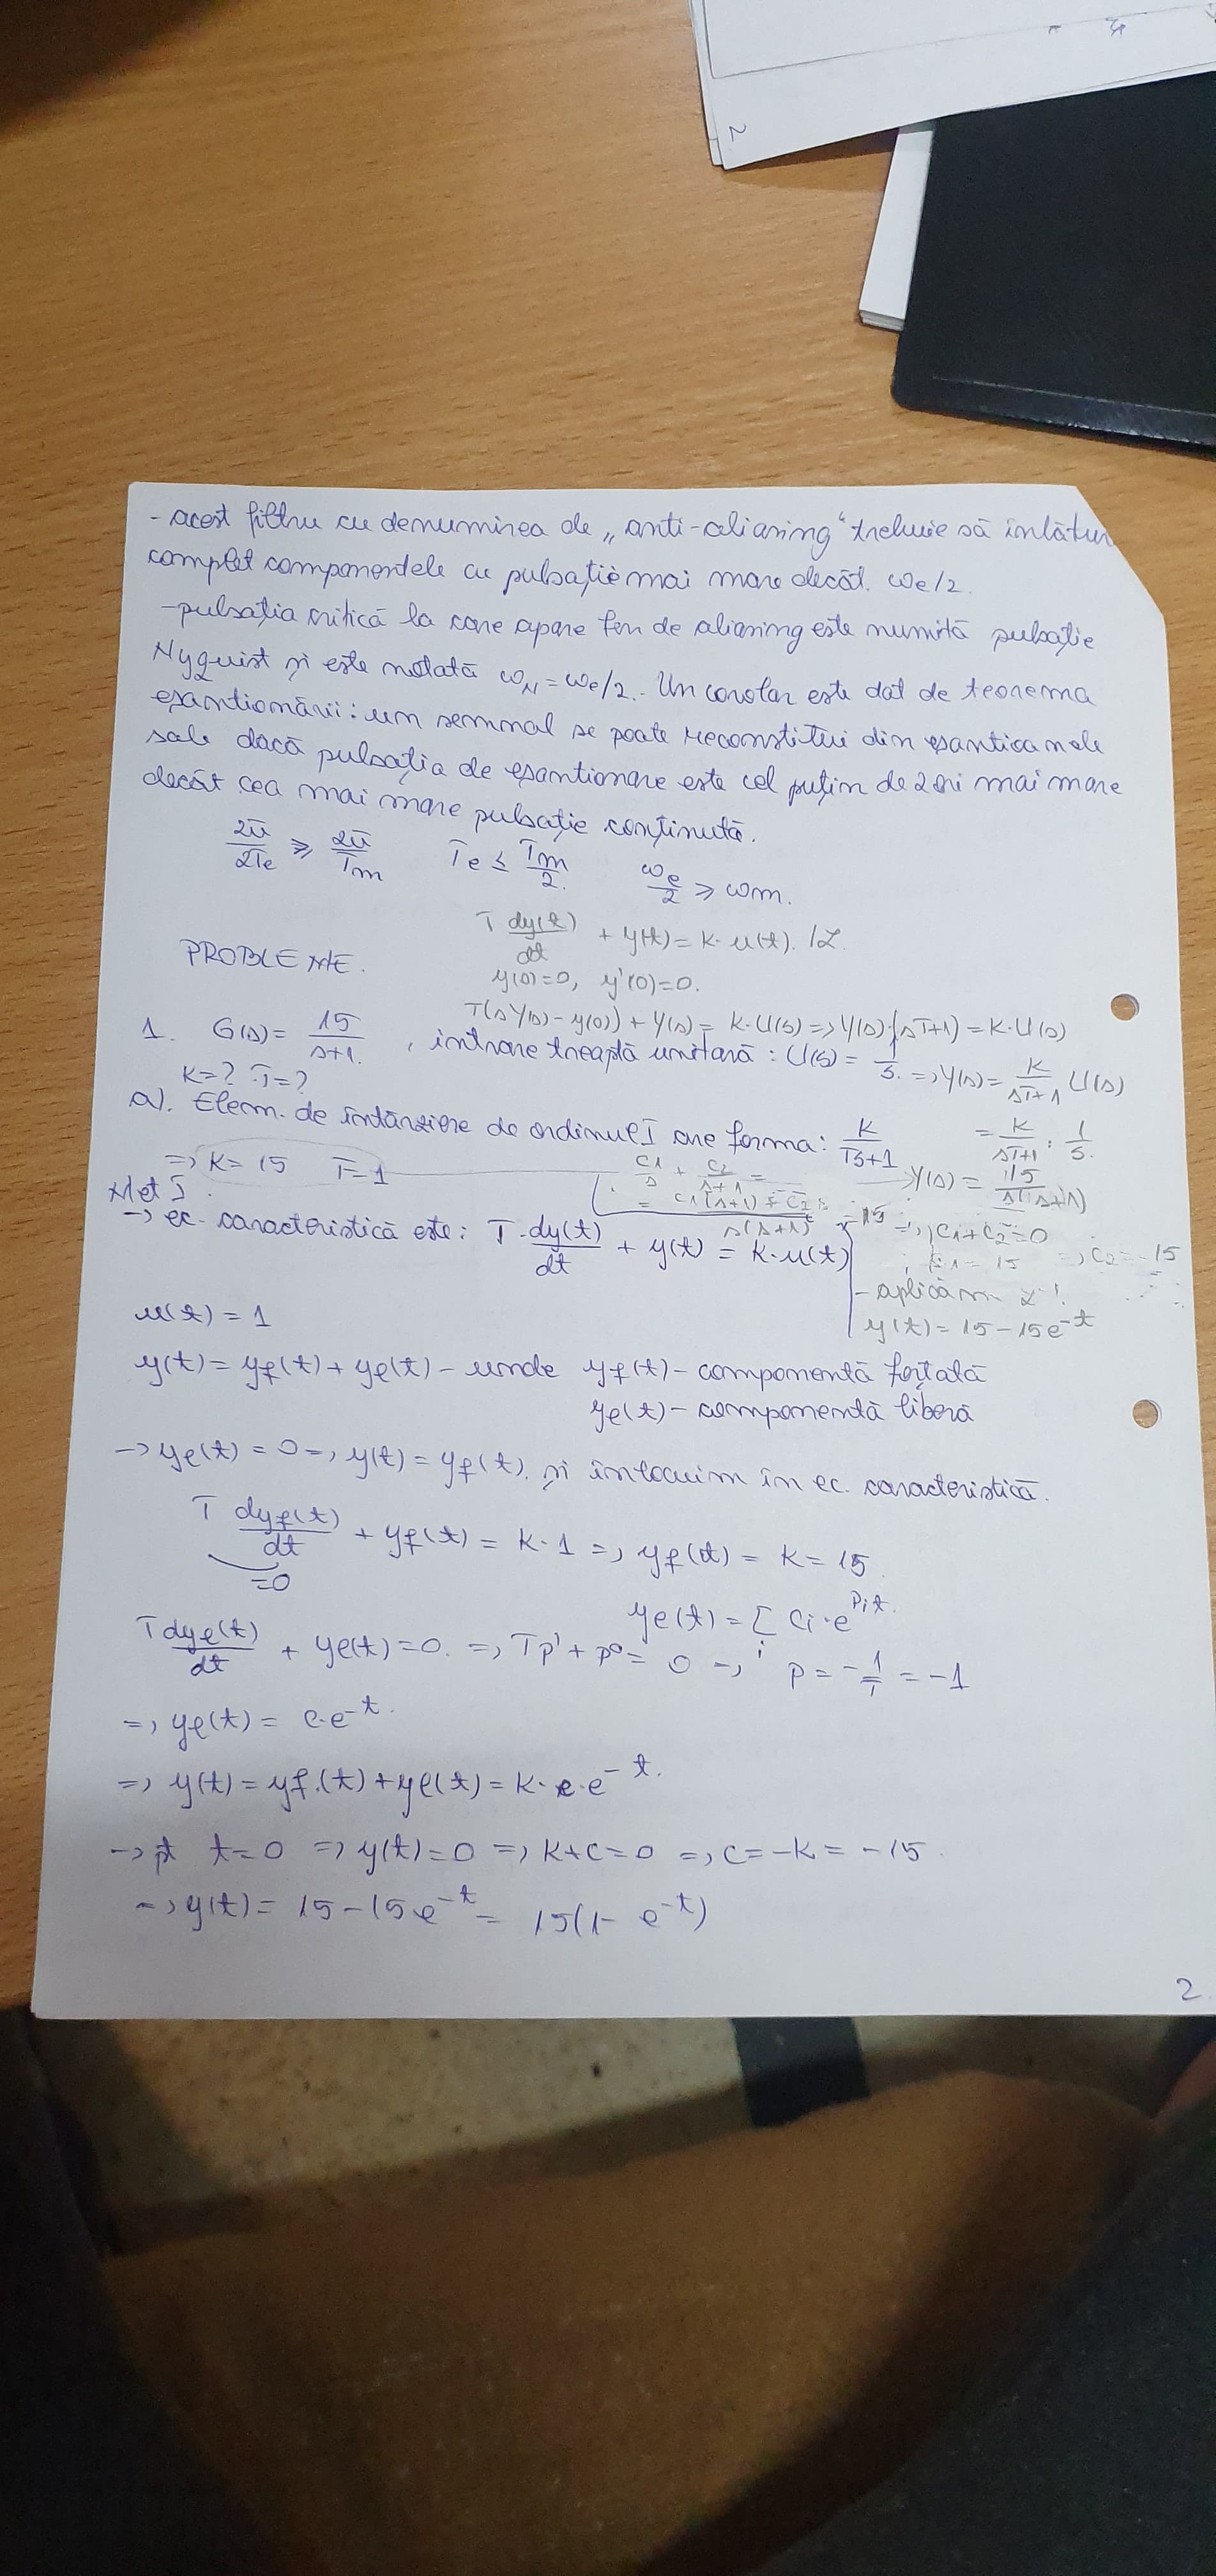 - acest filtru cu denumirea de „anti-aliasing“ trebuie să înlătur
complet componentele cu pulsație mai mare decât ωe/2.
- pulsația critică la care apare fen de aliasing este numită pulsație
Nyquist și este notată ωN = ωe/2. Un corolar este dat de teorema
eșantionării: un semnal se poate reconstitui din eșantioanele
sale dacă pulsația de eșantionare este cel puțin de 2 ori mai mare
decât cea mai mare pulsație conținută.
2π/2Te ≥ 2π/Tm Te ≤ Tm/2. ωe/2 ≥ ωm.
T dy(t)/dt + y(t) = K·u(t). /L
PROBLEME.
y(0)=0, y'(0)=0.
T(sY(s) - y(0)) + Y(s) = K·U(s) => Y(s)·(sT+1) = K·U(s)
1. G(s) = 15/s+1. , intrare treaptă unitară: U(s) = 1/s. => Y(s) = K/sT+1 U(s)
K=? T=?
a). Elem. de întârziere de ordinul I are forma: K/Ts+1 = K/sT+1 · 1/s.
=> K = 15 T = 1
C1/s + C2/s+1 = Y(s) = 15/s(s+1)
Met I.
= C1(s+1) + C2 s / s(s+1) = 15 => C1+C2=0
C1 = 15 => C2 = -15
-> ec. caracteristică este: T·dy(t)/dt + y(t) = K·u(t)
- aplicăm L⁻¹
y(t) = 15 - 15e^-t
u(t) = 1
y(t) = yf(t) + yl(t) - unde yf(t) - componentă forțată
yl(t) - componentă liberă
-> yl(t) = 0 => y(t) = yf(t). și înlocuim în ec. caracteristică.
T dyf(t)/dt + yf(t) = K·1 => yf(t) = K = 15.
=0
yl(t) = Σ Ci·e^Pit.
i
T dyl(t)/dt + yl(t) = 0. => Tp¹ + p⁰ = 0 => p = -1/T = -1
=> yl(t) = C·e^-t.
=> y(t) = yf.(t) + yl(t) = K·c·e^-t.
-> pt t=0 => y(t) = 0 => K+C=0 => C=-K = -15.
=> y(t) = 15 - 15e^-t = 15(1- e^-t)
2.